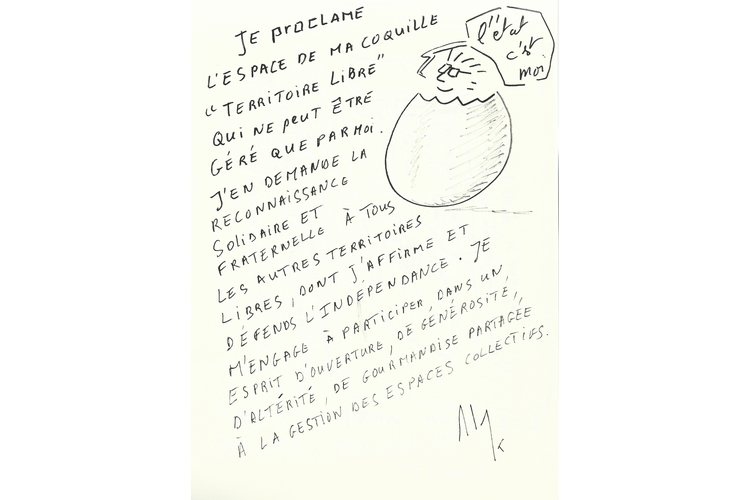 JE PROCLAME
L'ESPACE DE MA COQUILLE
"TERRITOIRE LIBRE"
QUI NE PEUT ÊTRE
GÉRÉ QUE PAR MOI.
J'EN DEMANDE LA
RECONNAISSANCE
SOLIDAIRE ET
FRATERNELLE À TOUS
LES AUTRES TERRITOIRES
LIBRES, DONT J'AFFIRME ET
DÉFENDS L'INDÉPENDANCE. JE
M'ENGAGE À PARTICIPER, DANS UN
ESPRIT D'OUVERTURE, DE GÉNÉROSITÉ,
D'ALTÉRITÉ, DE GOURMANDISE PARTAGÉE
À LA GESTION DES ESPACES COLLECTIFS.
l'état
c'est
moi